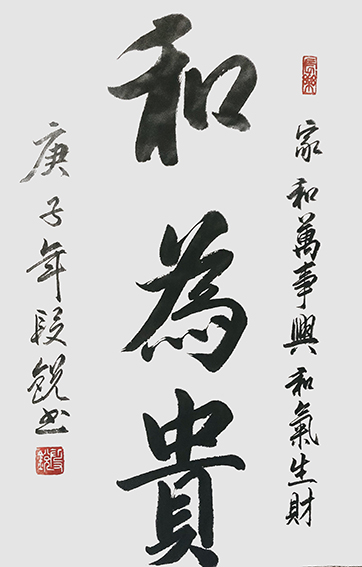 家和萬事興和氣生財
和為貴
庚子年段銳书